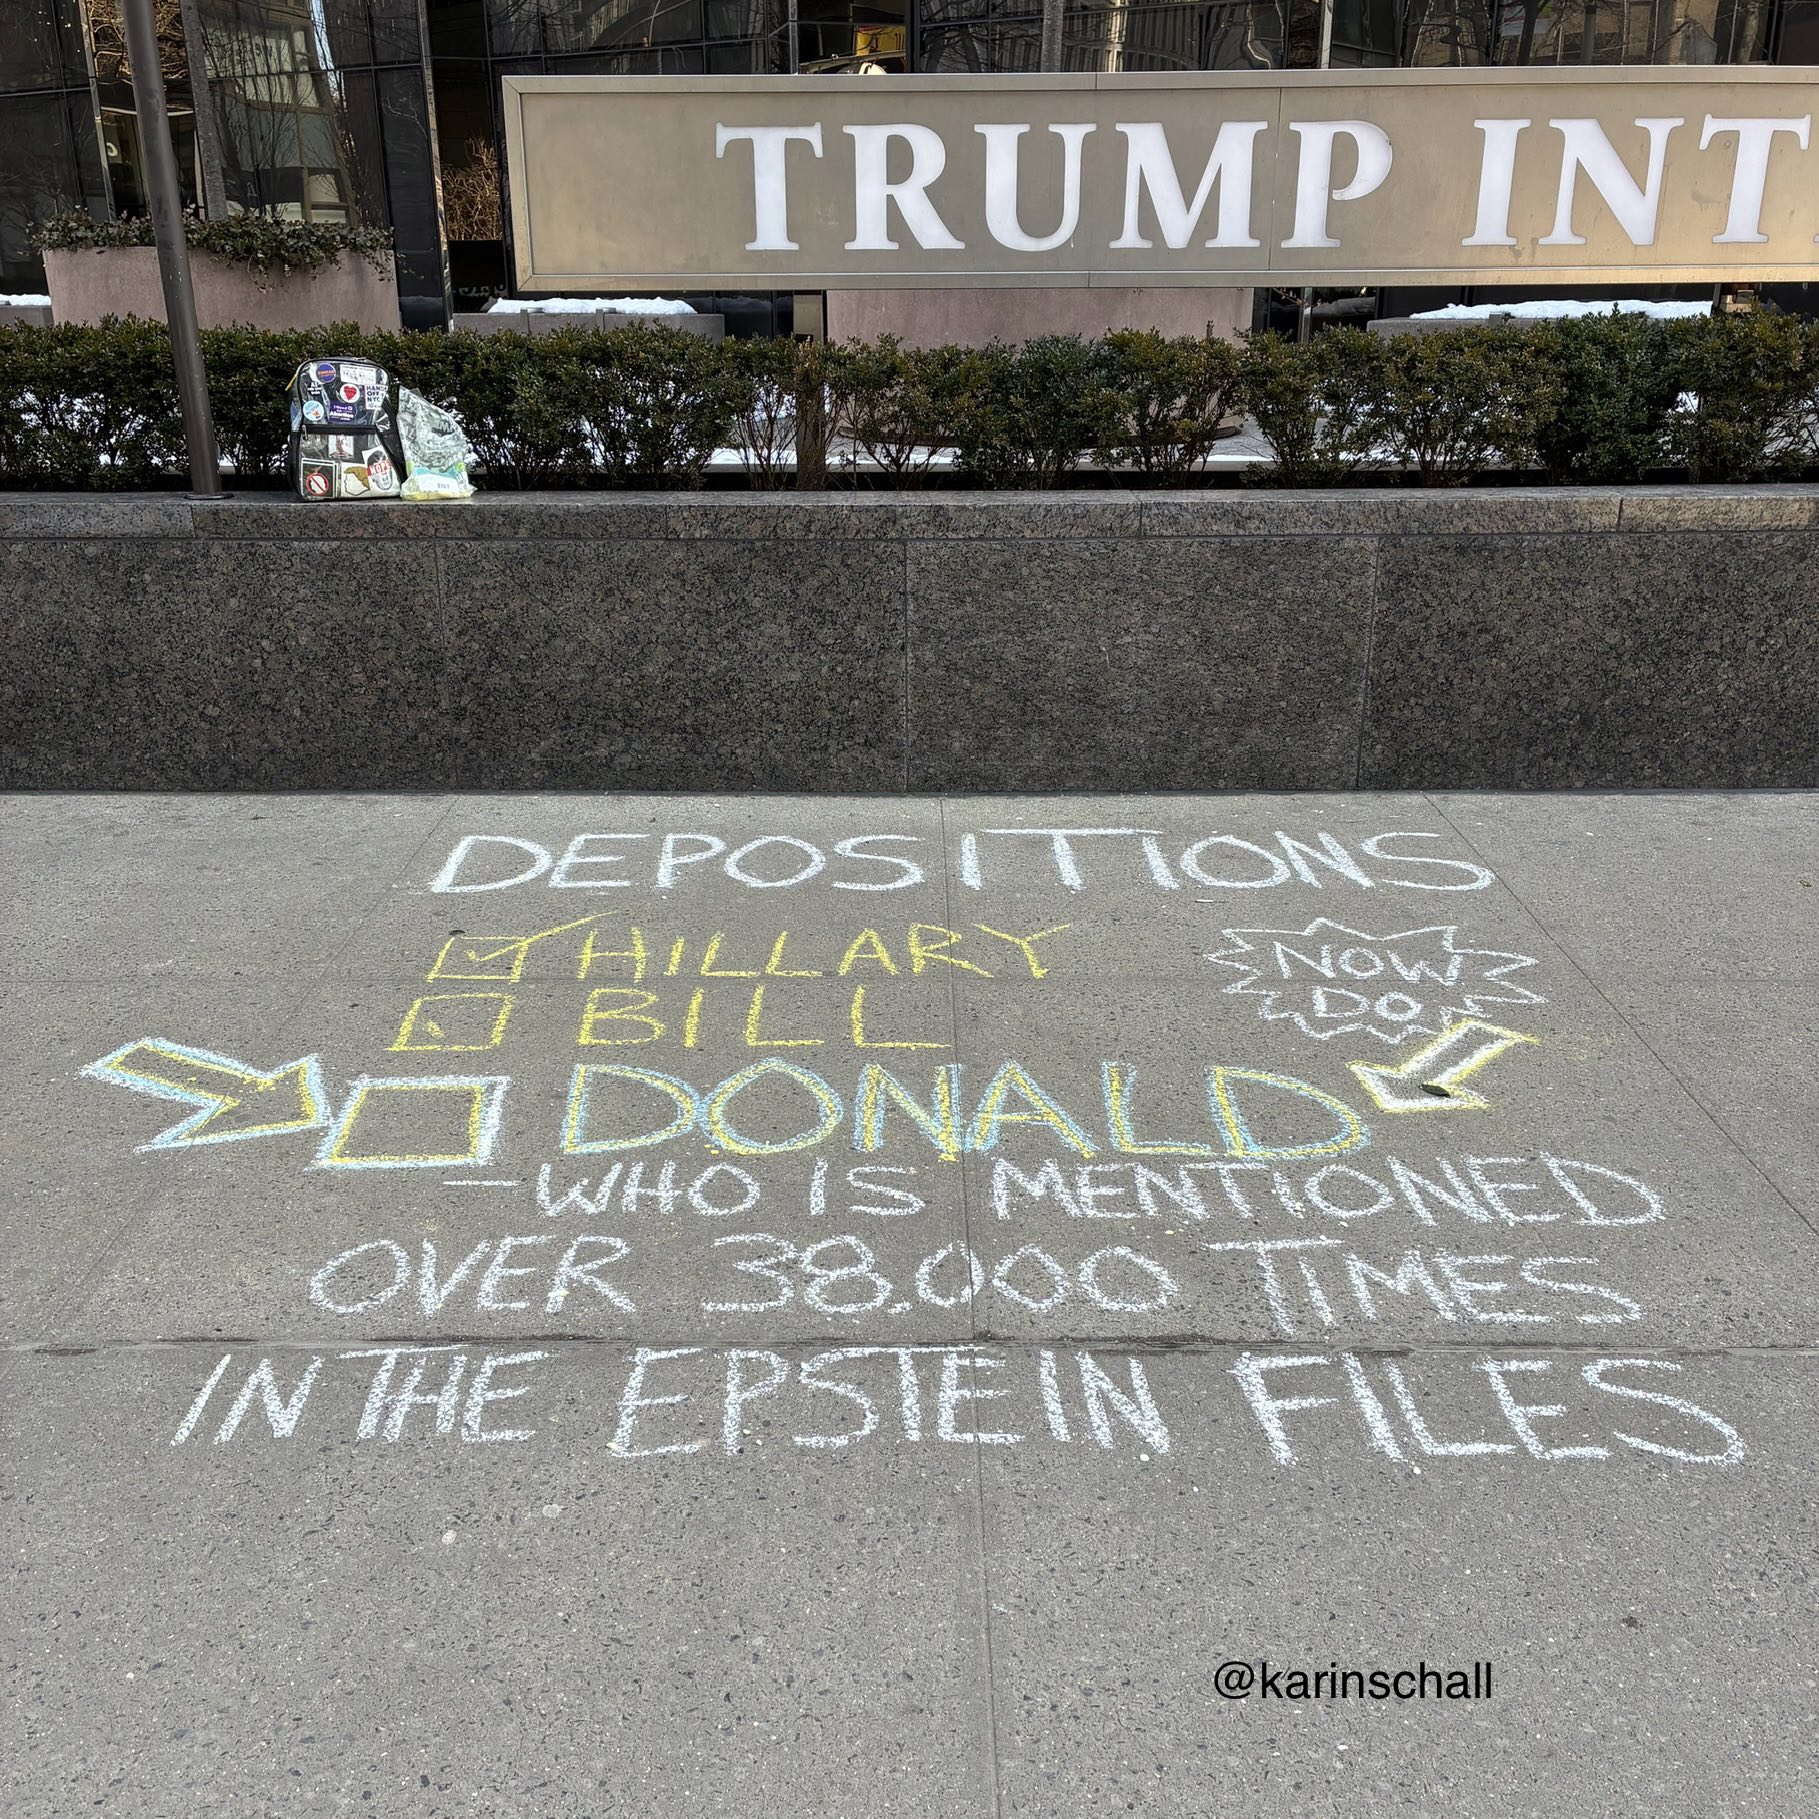 TRUMP INT
HANDS
OFF
NYC
DEPOSITIONS
HILLARY
BILL
NOW
DO
DONALD
–WHO IS MENTIONED
OVER 38,000 TIMES
IN THE EPSTEIN FILES
@karinschall